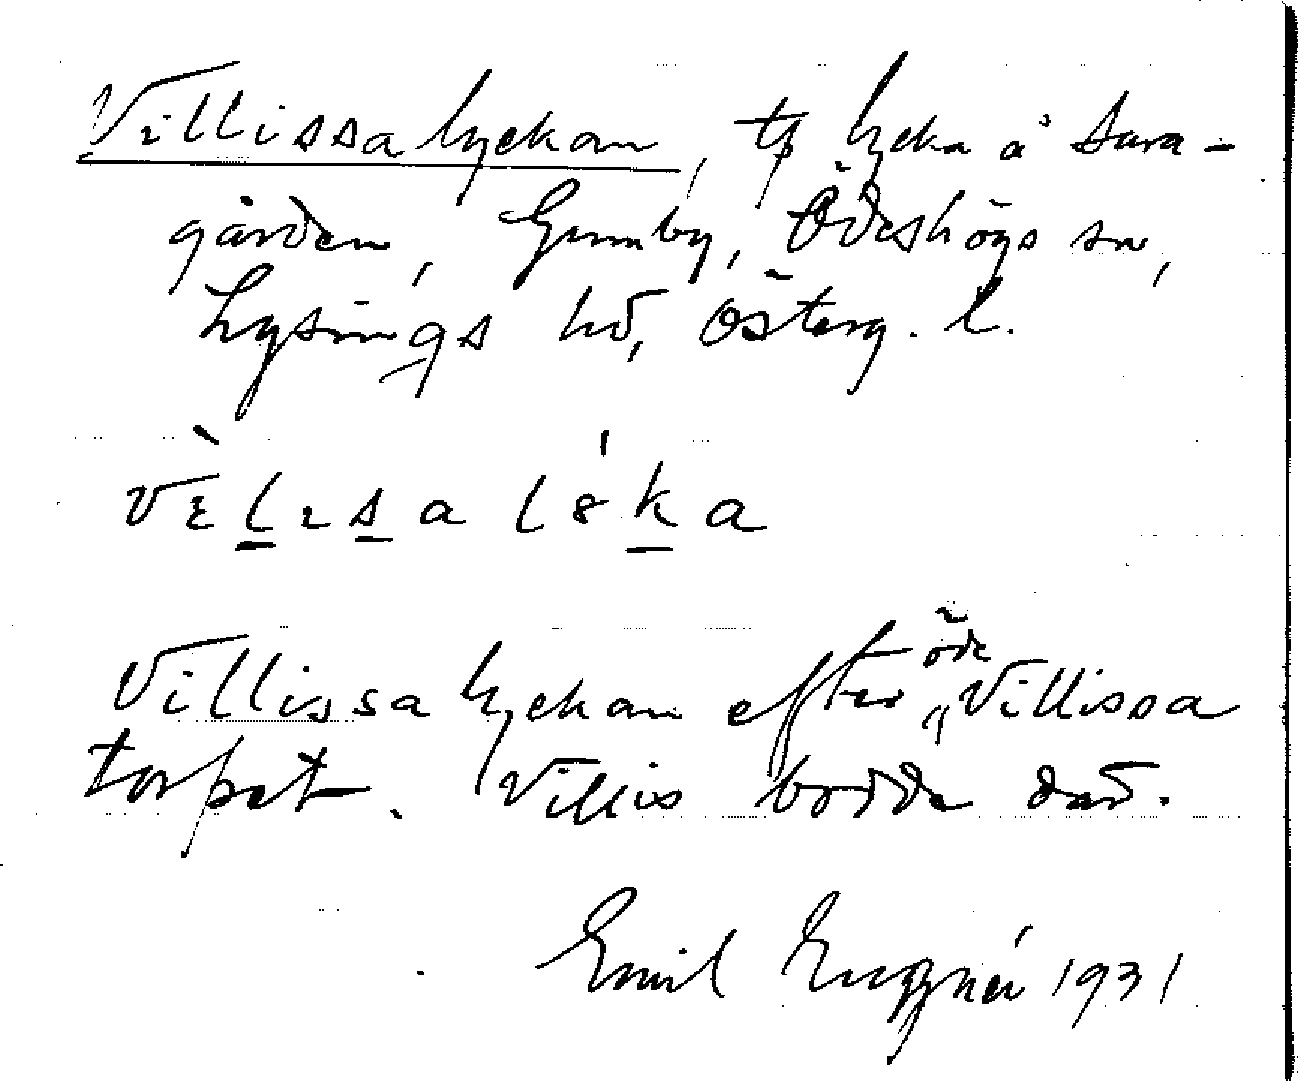 Villissalyckan, tp lycka å Sura-
gården, Gumby, Ödeshögs sn,
Lysings hd, Österg. l.
vɛ̀lɩsa lɞ́ka
Villissalyckan efter öde „Villissa
torpet. Villis bodde där.
Emil 1931